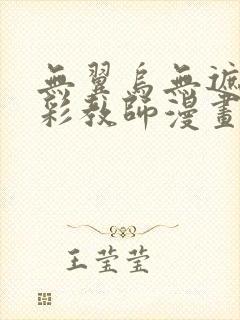 無翼烏無遮
彩教師漫畫
王莹莹